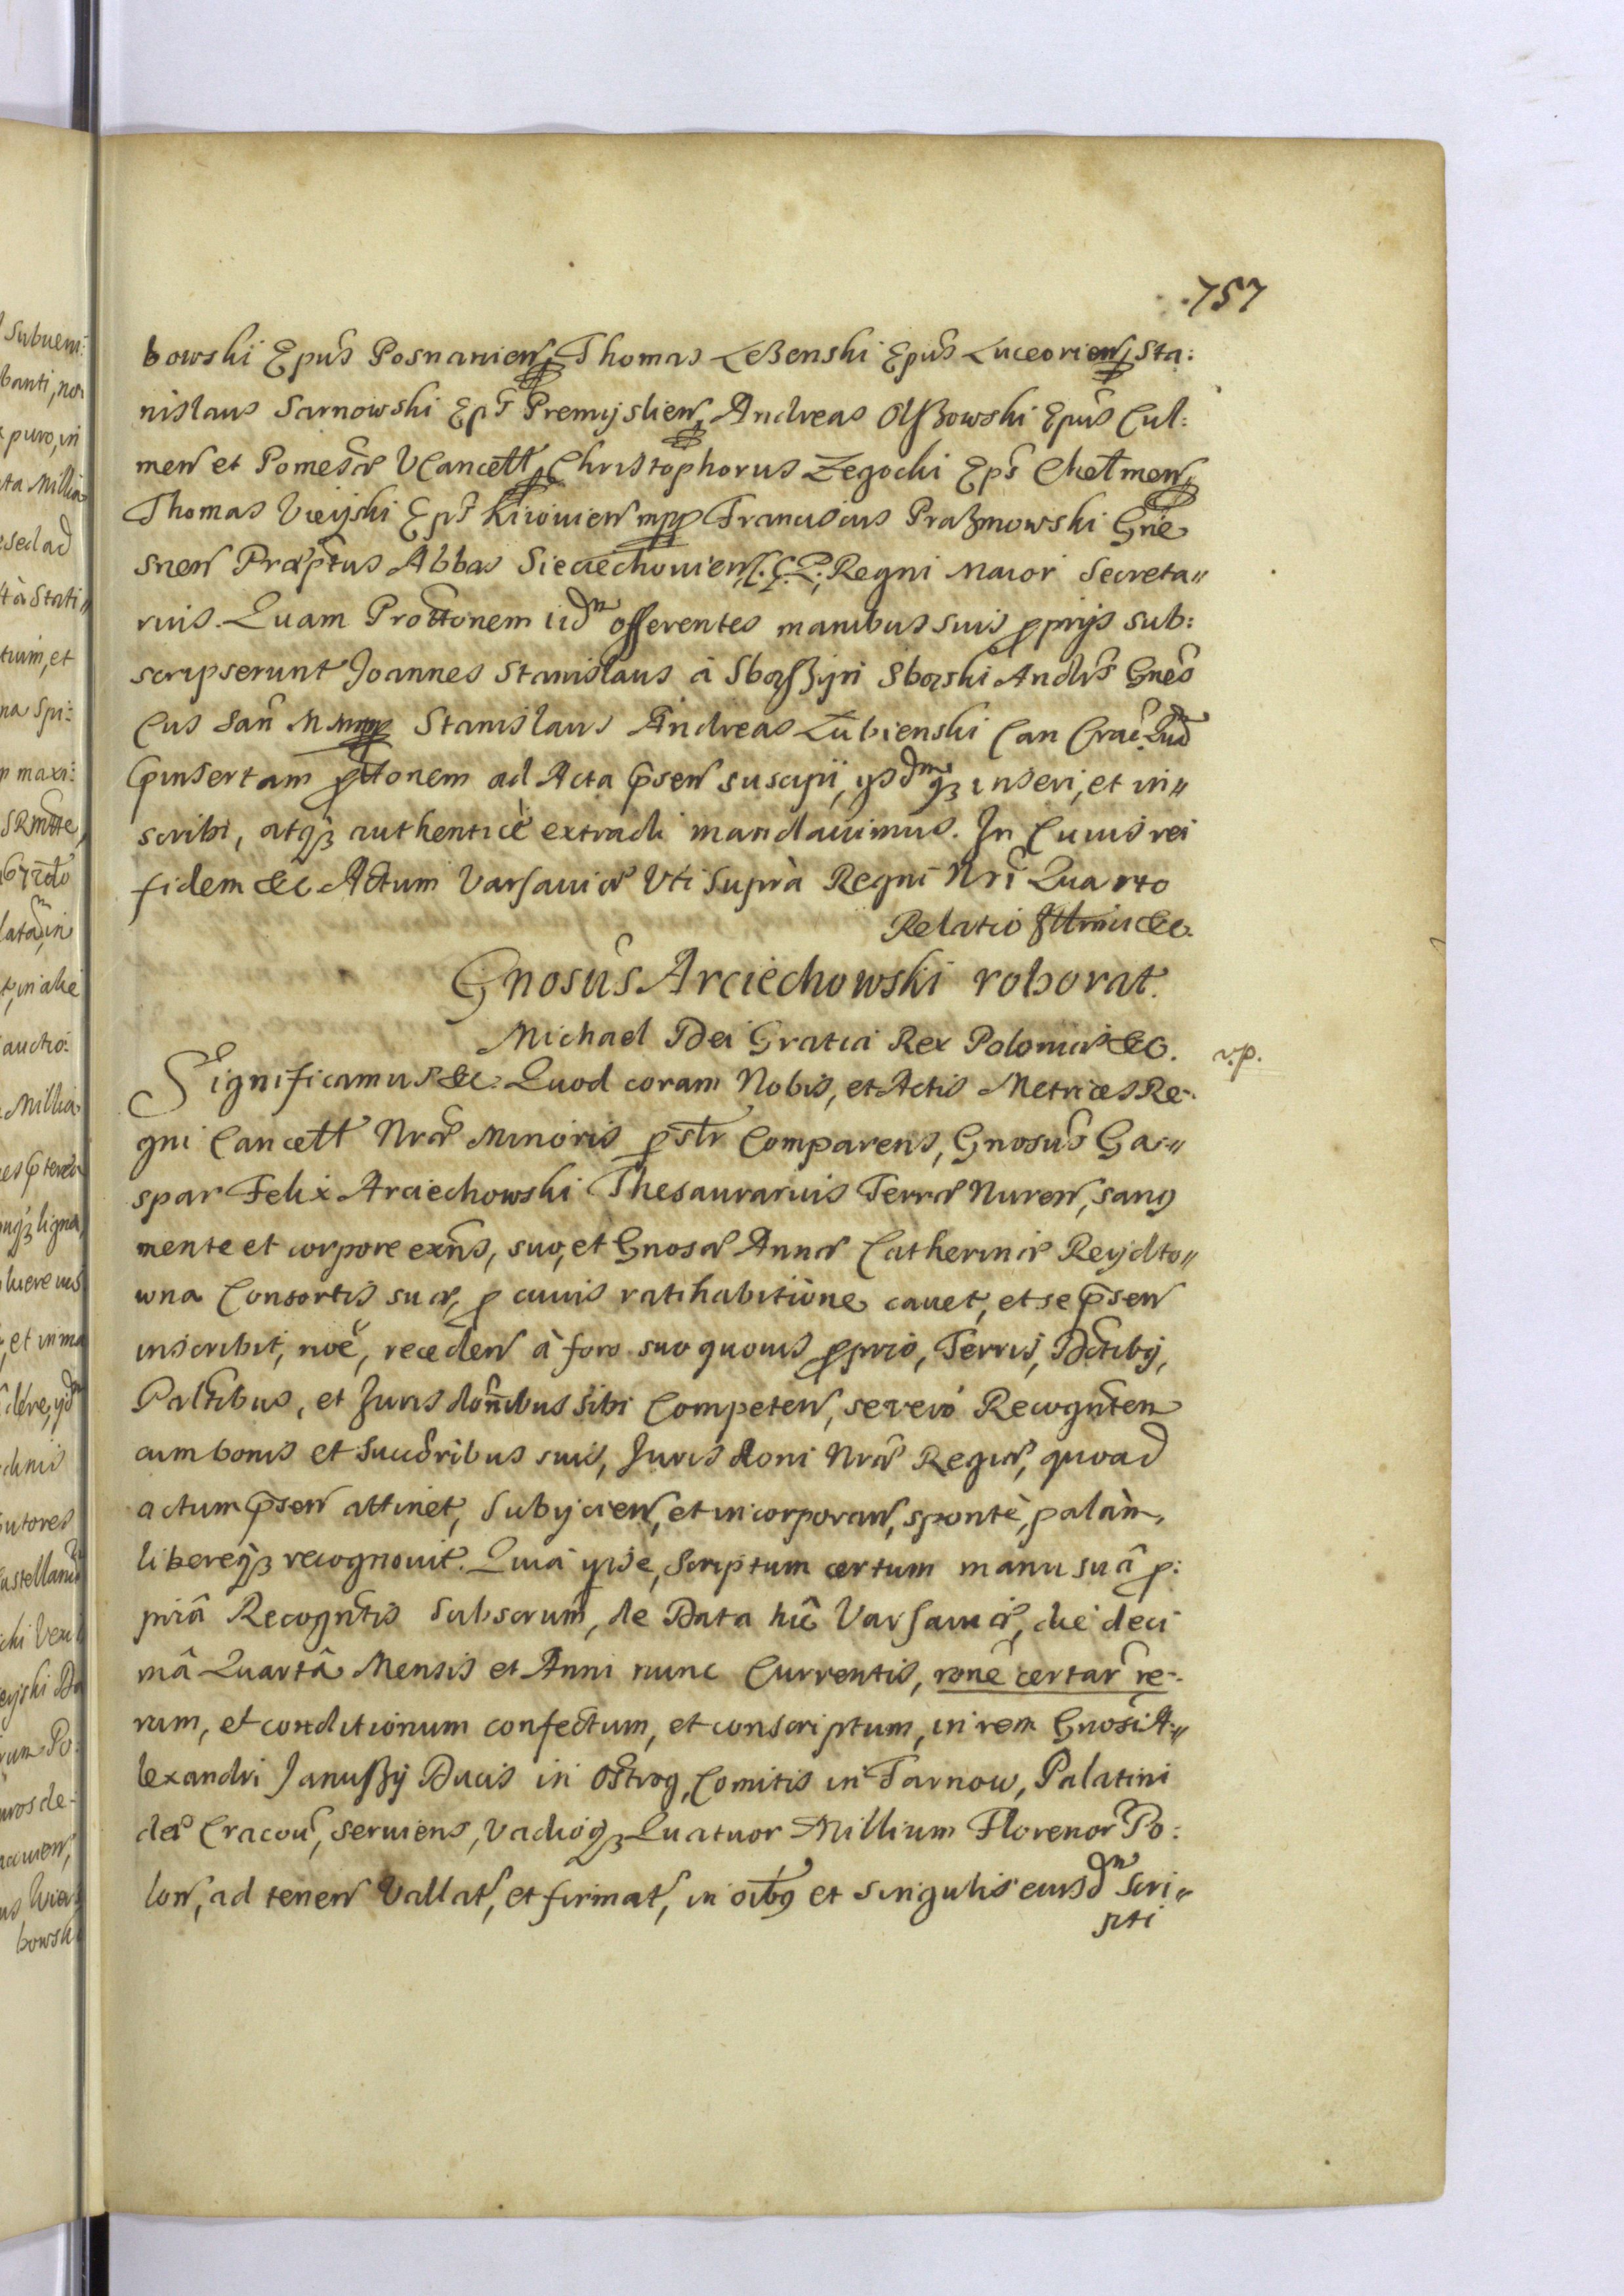 757
bowski Epus Posnanien, Thomas Leßenski Epus Luceorien, Sta:
nislaus Sarnowski Eps Premyslien, Andreas Olßowski Epus Cul:
men et Pomesæ VCancell, Christophorus Zegocki Eps Chełmen,
Thomas Vieyski Eps Kiiovien mpp Franciscus Praßmowski Gne
snen Præptus Abbas Sieciechovien, Regni Maior Secreta„
rius. Quam Prottonem iidm offerentes manibus suis pprijs sub:
scripserunt Joannes Stanislaus à Sborßyn Sborski Andrs Gnes
Cus San Stanislaus Andreas Łubienski Can Crac. Qud
Pinsertam pttonem ad Acta Psen suscipi, ysdmqз inseri, et in„
scribi, atqз authenticè extradi mandavimus. In Cuius rei
fidem &c Actum Varsaviæ Vti Suprà Regni Nri Quarto
Relatio Illmi &c.
Gnosus Arciechowski roborat.
Michael Dei Gratia Rex Poloniæ &c. r.p.
Significamus &c. Quod coram Nobis, et Actis Metrices Re-
gni Cancell Nræ Minoris pstr Comparens, Gnosus Ga-„
spar Felix Arciechowski Thesaurarius Terræ Nuren, sang
mente et corpore exns, suo, et Gnosæ Annæ Catherinæ Reydto„
wna Consortis suæ, p cuius ratihabitione cavet, et se psen
inscribit, noe, receden à foro suo quovis pprio, Terris, Dctiby,
Paltibus, et Jurisdonnibus sibi Competen, se verò Recognten
cum bonis et Succribus suis, Jurisdoni Nræ Regiæ, quoad
actum psen attinet, Subijcien, et incorporan, spontè, palàm,
libereqз recognovit. Quia ipse, Scriptum certum manu suâ p:
priâ Recogntis Subscrum, de Data hic Varsaviæ, die deci
mâ Quartâ Mensis et Anni nunc Currentis, rone certar re-
rum, et conditionum confectum, et conscriptum, in rem Gnosi A-„
lexandri Janußij Ducis in Ostrog, Comitis in Tarnow, Palatini
der Cracov, serviens, vadioqз Quatuor Millium Florenor Po:
lon, ad tenen Vallat, et firmat, in oibg et singulis eiusdm Scri„
pti